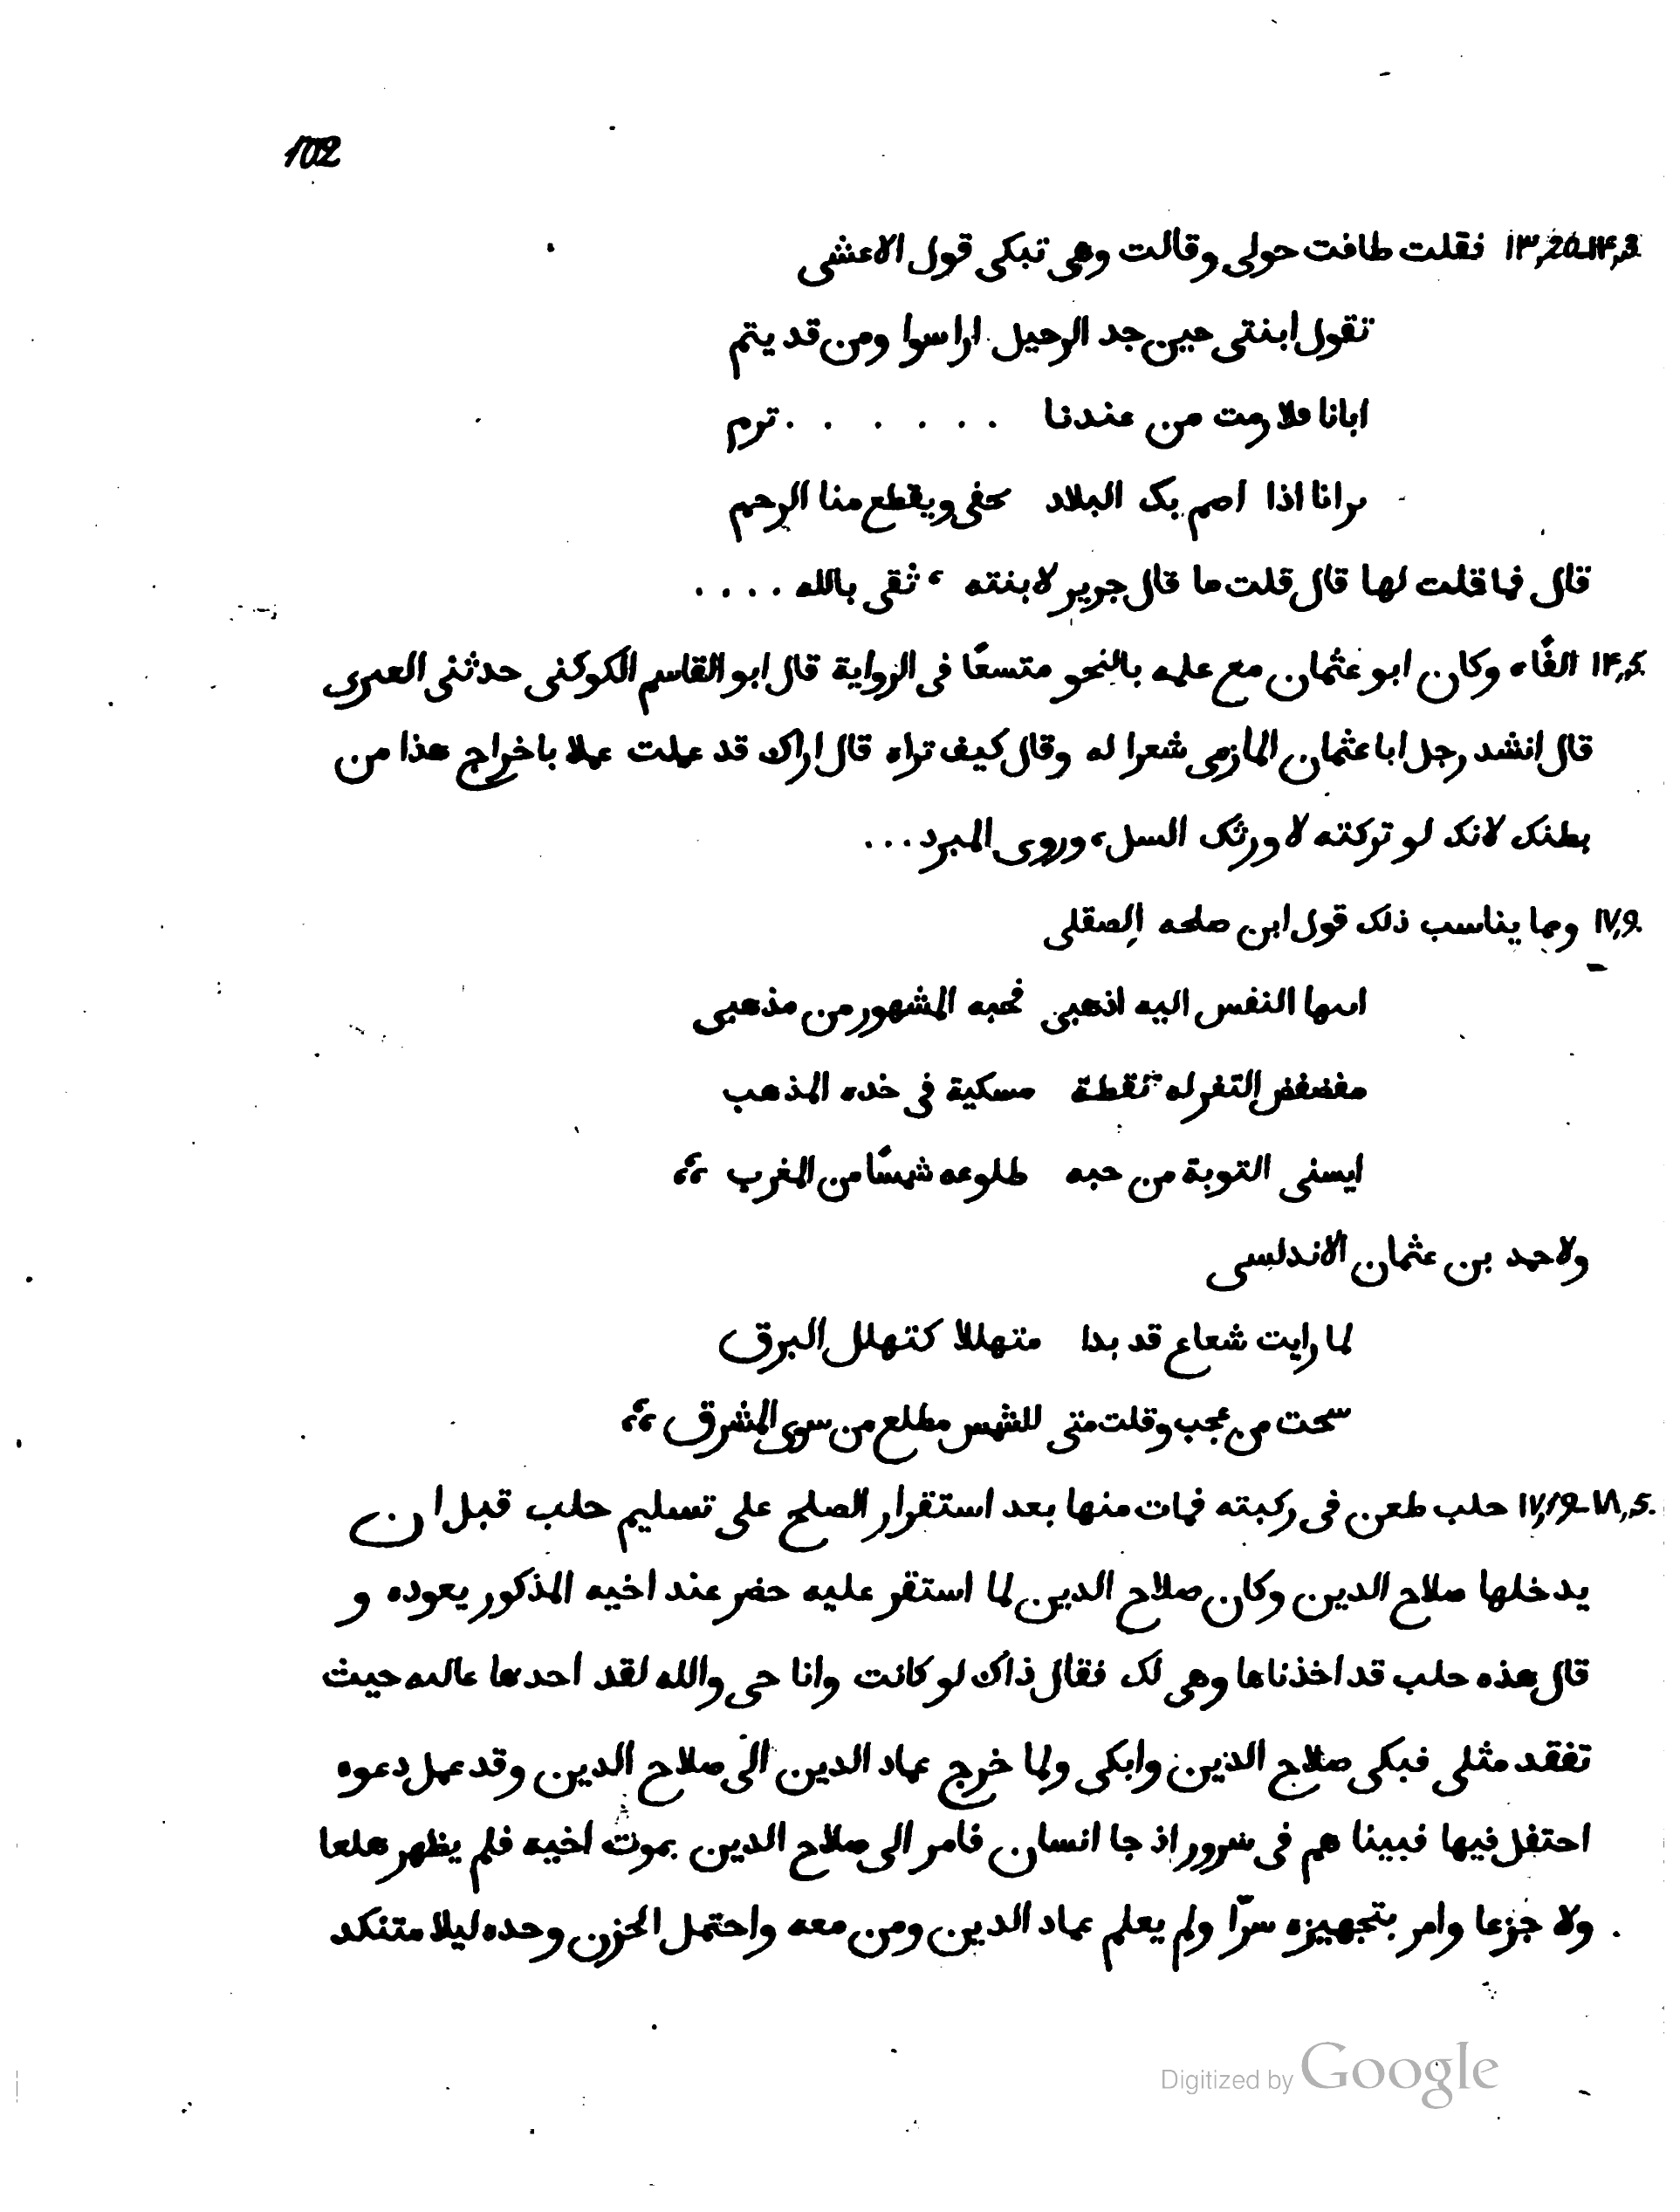 102
١٣,20-١۴,3. فقلت طافت حولى وقالت وهى تبكى قول الاعشى
تقول ابنتى حين جد الرحيل ارا سوا ومن قد يتم
ابانا فلا رمت من عندنا . . . . . . ترم
برانا اذا اصم بك البلاد محفى ويقطع منا الرحم
قال فما قلت لها قال قلت ما قال جرير لابنته ، ثقى بالله . . . .
١۴,5. القاه وكان ابو عثمان مع علمه بالنحو متسعًا فى الرواية قال ابو القاسم الكوكنى حدثنى العبرى
قال انشد رجل ابا عثمان المازنى شعرا له وقال كيف تراه قال اراك قد عملت عملا باخراج هذا من
بطنك لانك لو تركته لاورثك السل، وروى المبرد...
١٧,9. ومما يناسب ذلك قول ابن صلحه الصقلى
ايها النفس اليه اذهبى فحبه المشهور من مذهبى
مفضفض الثغر له نقطة مسكية فى خده المذهب
ايسنى التوبة من حبه طلوعه شمسًا من المغرب
ولاحمد بن عثمان الاندلسى
لما رايت شعاع قد بدا متهللا كتهلل البرق
سبحت من عجب وقلت متى للشمس مطلع من سوى المشرق
١٧,19-١٨,5. حلب طعن فى ركبته فمات منها بعد استقرار الصلح على تسليم حلب قبل ان
يدخلها صلاح الدين وكان صلاح الدين لما استقر عليه حضر عند اخيه المذكور يعوده و
قال هذه حلب قد اخذناها وهى لك فقال ذاك لو كانت وانا حى والله لقد احدها عاليه حيث
تفقد مثلى فبكى صلاح الدين وابكى ولما خرج عماد الدين الى صلاح الدين وقد عمل دعوه
احتفل فيها فبينا هم فى سرور اذ جا انسان فامر الى صلاح الدين بموت اخيه فلم يظهر هلعا
ولا جزعا وامر بتجهيزه سرّا ولم يعلم عماد الدين ومن معه واحتمل الحزن وحده ليلا متنكد
Digitized by Google